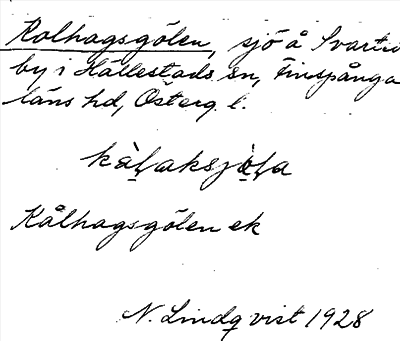 Kolhagsgölen, sjö å Svartvi
by i Hällestads sn, Finspånga
läns hd, Österg. l.
kàl̥aksjø̀l̥a
Kålhagsgölen ek
N. Lindqvist 1928